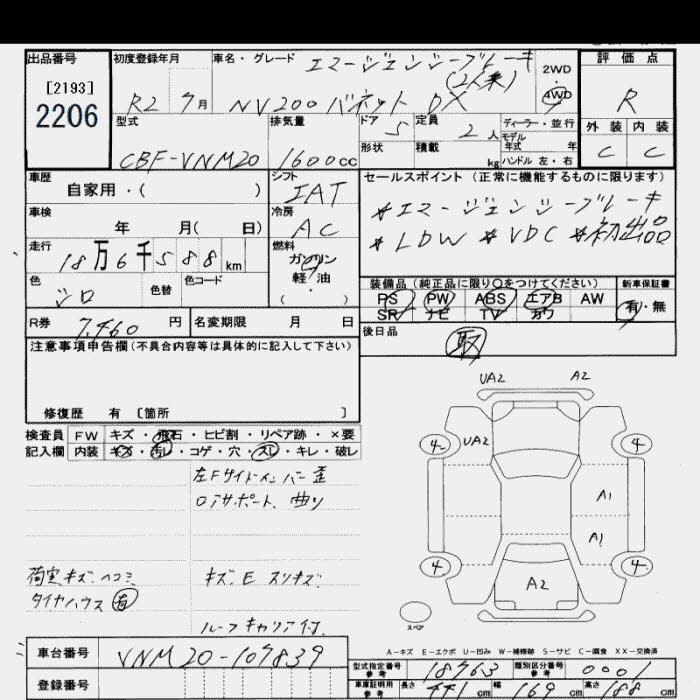 出品番号
[2193]
2206
初度登録年月
R2 7月
車名・グレード
エマージェンシーブレーキ
(2人乗)
NV200 バネット DX
2WD
4WD
評価点
R
外装 内装
C C
型式
CBF-VNM20
排気量
1600cc
ドア 5
定員 2人
形状
積載 kg
ディーラー・並行
モデル年式 年
ハンドル 左・右
車歴
自家用・( )
シフト
IAT
車検
年 月( 日)
冷房
AC
走行
18万6千588km
燃料
ガソリン
軽・油
・( )
色
シロ
色替
色コード
R券 7,460円
名変期限 月 日
セールスポイント(正常に機能するものに限ります)
*エマージェンシーブレーキ
*LDW *VDC *初出品
装備品(純正品に限り○をつけてください)
新車保証書
PS PW ABS エアB AW
SR ナビ TV カワ
有・無
後日品
取
注意事項申告欄(不具合内容等は具体的に記入して下さい)
修復歴 有 [箇所 ]
検査員 FW キズ・飛石・ヒビ割・リペア跡・×要
記入欄 内装 キズ・汚レ・コゲ・穴・スレ・キレ・破レ
左Fサイドメンバー歪
ロアサポート、曲り
荷室キズ、ヘコミ
キズ、E スリキズ、
タイヤハウス 有
ルーフキャリア付、
UA2 A2
UA2
4 4
A1
A1
4 4
A2
スペア
A-キズ E-エクボ U-凹み W-補修跡 S-サビ C-腐食 XX-交換済
車台番号
VNM20-107839
登録番号
型式指定番号 参考 18763
類別区分番号 参考 0001
車庫証明用 参考 長さ 441cm 幅 169cm 高さ 188cm